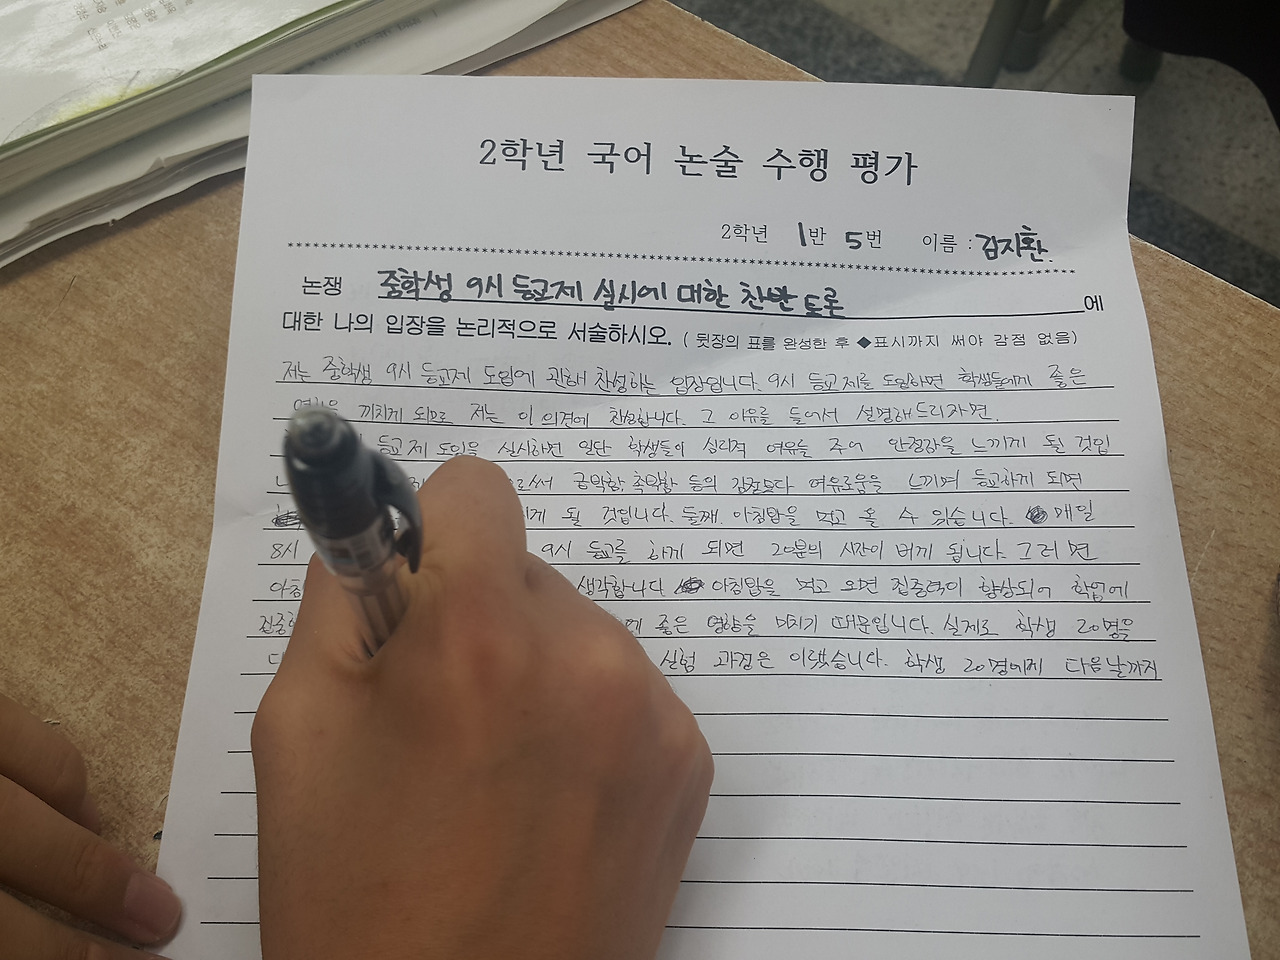 2학년 국어 논술 수행 평가
2학년 1반 5번 이름 : 김지환
논쟁 중학생 9시 등교제 실시에 대한 찬반 토론 에
대한 나의 입장을 논리적으로 서술하시오. ( 뒷장의 표를 완성한 후 ◆표시까지 써야 감점 없음)
저는 중학생 9시 등교제 도입에 관해 찬성하는 입장입니다. 9시 등교제를 도입하면 학생들에게 좋은
끼치게 되므로 저는 이 의견에 찬성합니다. 그 이유를 들어서 설명해드리자면.
등교제 도입을 실시하면 일단 학생들이 심리적 여유를 주어 안정감을 느끼게 될 것입
로써 긍박함, 촉박함 등의 감정보다 여유로움을 느끼며 등교하게 되면
게 될 것입니다. 둘째. 아침밥을 먹고 올 수 있습니다. 매일
8시 9시 등교를 하게 되면 20분의 시간이 벌게 됩니다. 그러면
생각합니다 아침밥을 먹고 오면 집중력이 향상되어 학업에
좋은 영향을 미치기 때문입니다. 실제로 학생 20명을
실험 과정은 이랬습니다. 학생 20명에게 다음날까지